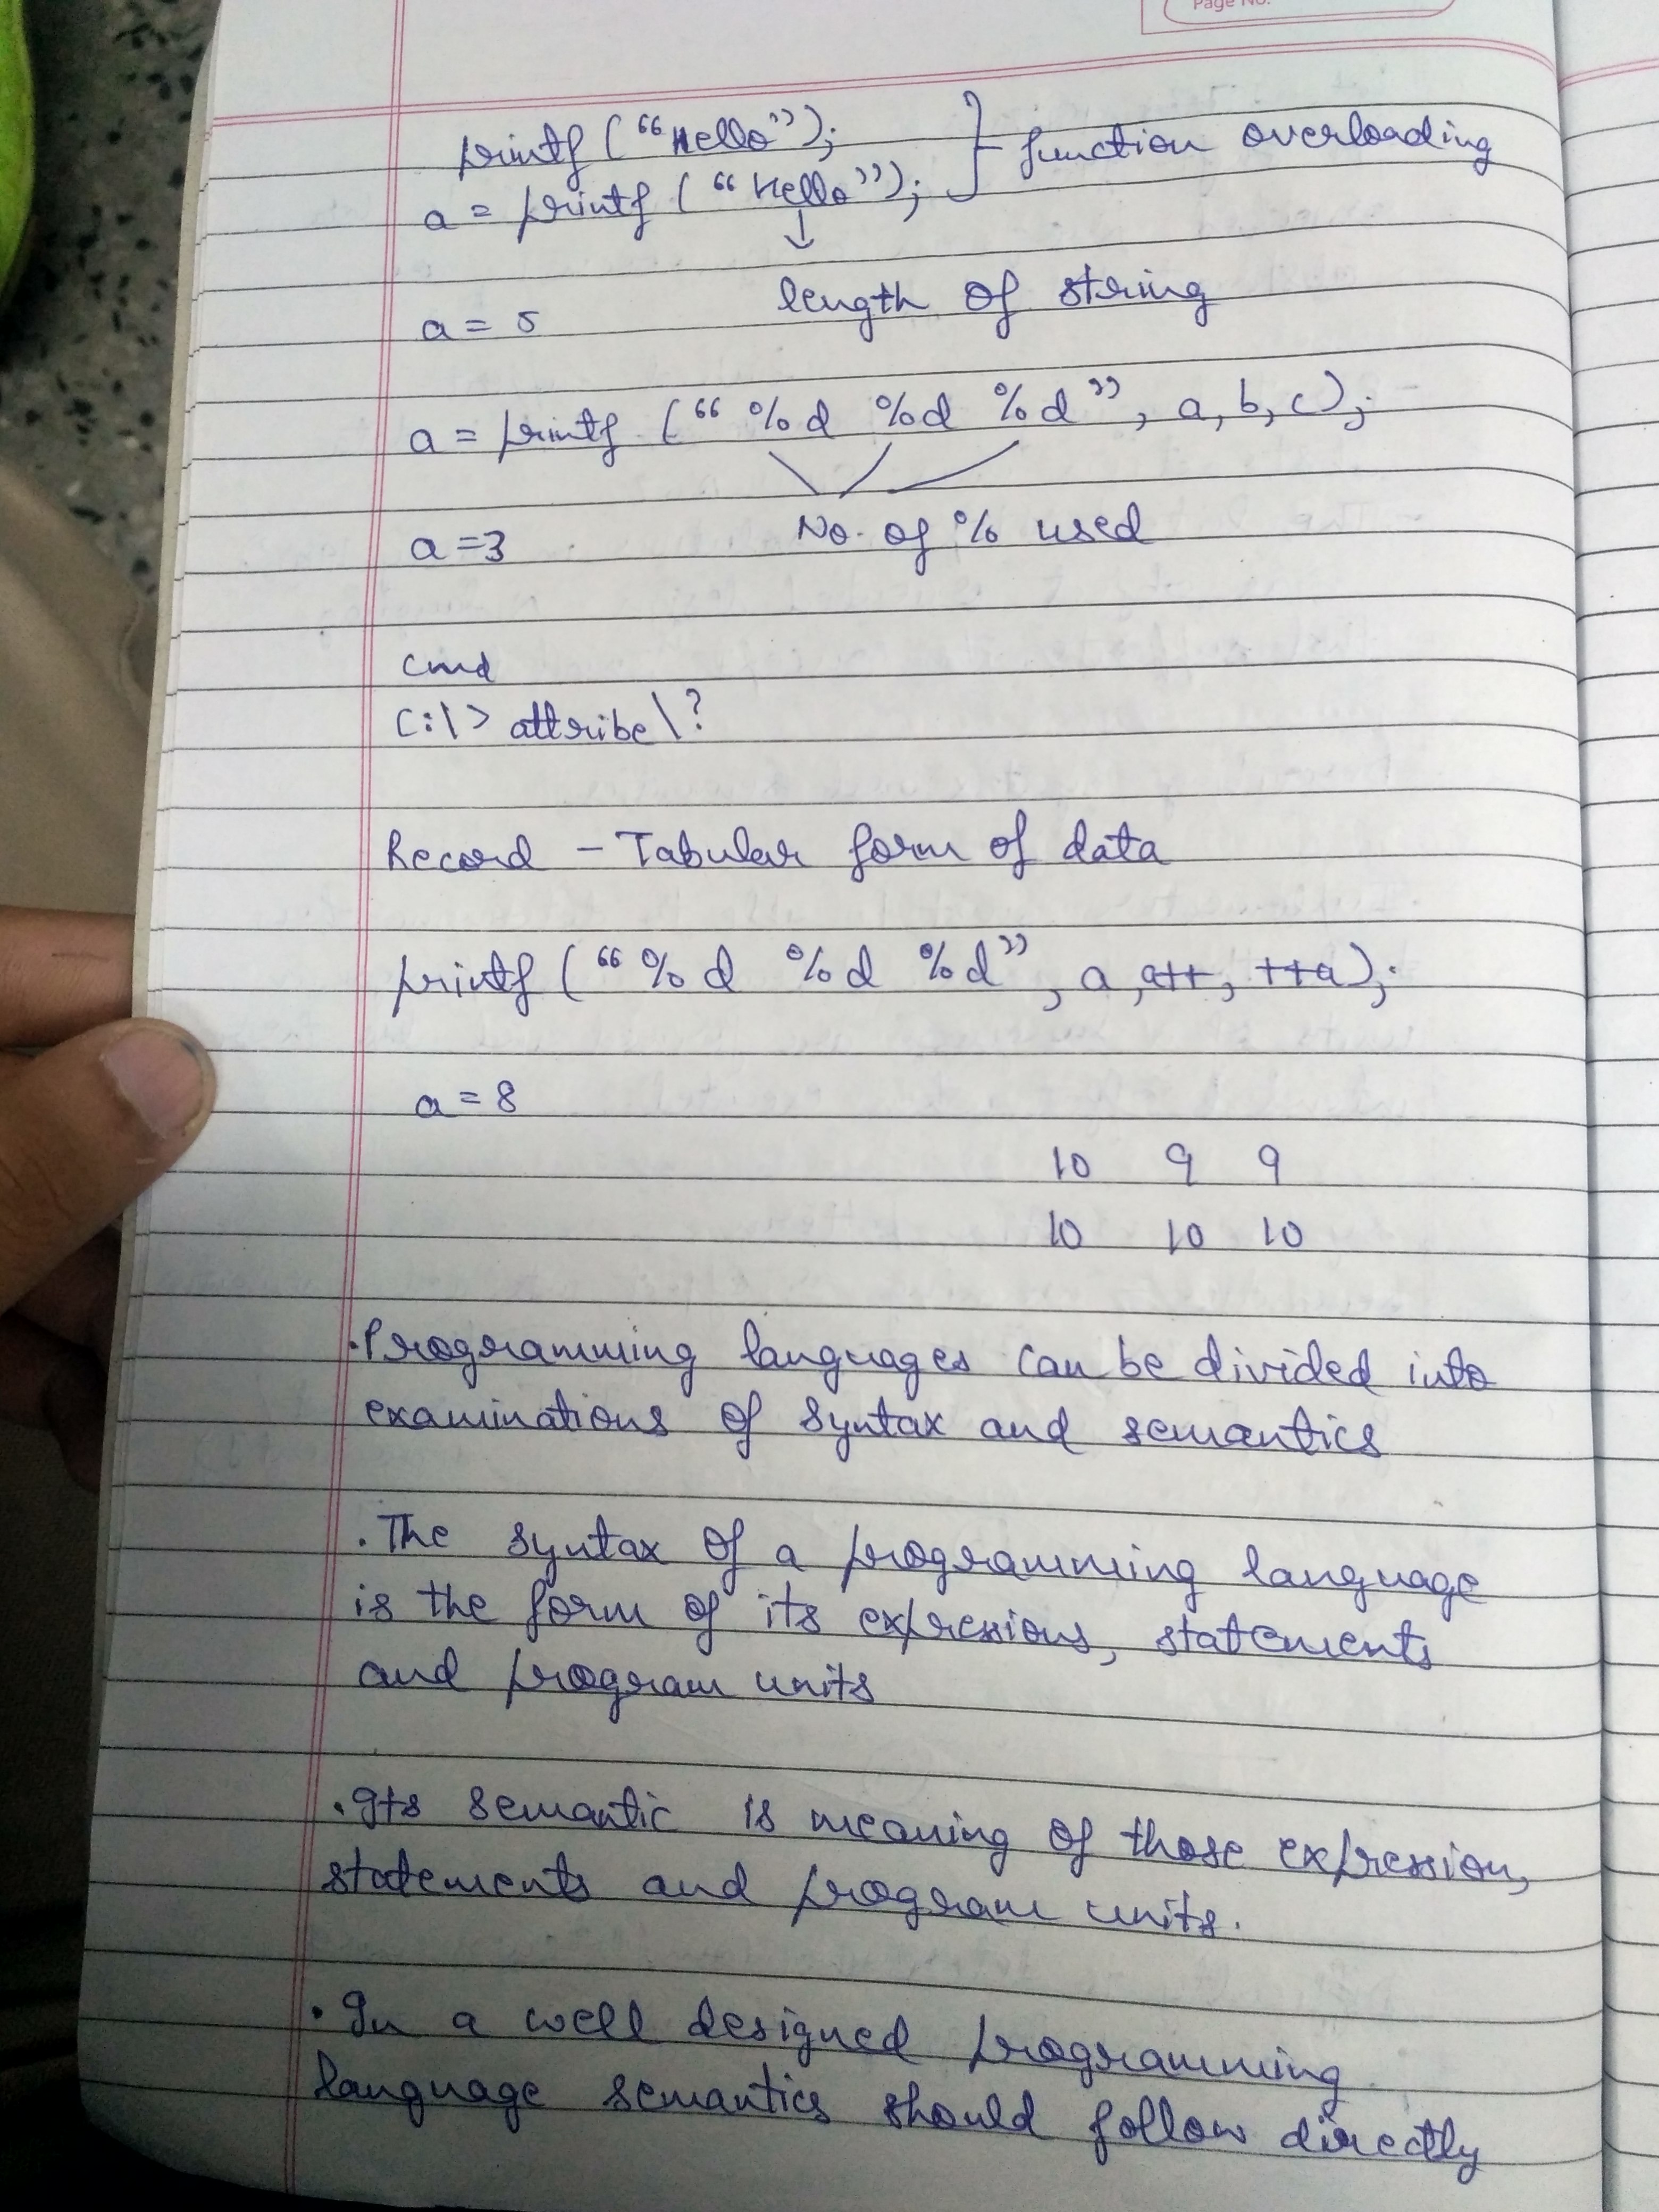 Page No.
printf ("Hello"); } function overloading
a = printf ("Hello");
↓
length of string
a = 5
a = printf ("%d %d %d", a, b, c);
No. of % used
a = 3
cmd
C:\> attribe\?
Record - Tabular form of data
printf ("%d %d %d", a, a++, ++a);
a = 8
10 9 9
10 10 10
. Programming languages can be divided into
examinations of syntax and semantics
. The syntax of a programming language
is the form of its expressions, statements
and program units
. Its semantic is meaning of those expression,
statements and program units.
. In a well designed programming
language semantics should follow directly